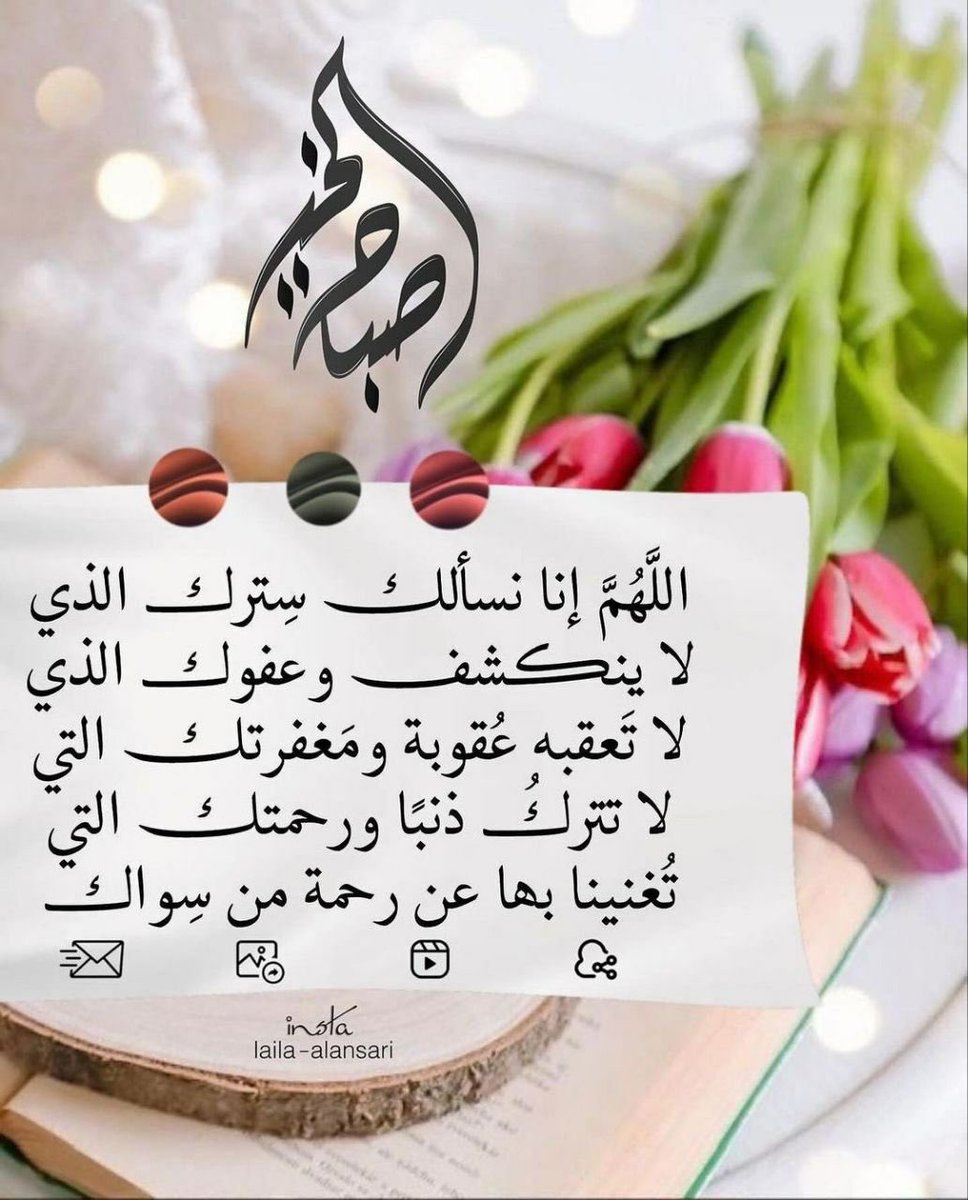 صباح الخير
اللَّهُمَّ إنا نسألك سِترك الذي
لا ينكشف وعفوك الذي
لا تَعقبه عُقوبة ومَغفرتك التي
لا تتركُ ذنبًا ورحمتك التي
تُغنينا بها عن رحمة من سِواك
insta
laila-alansari